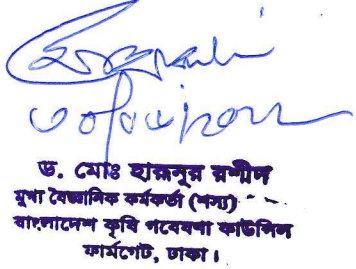 ড. মোঃ হারূনূর রশীদ
মুখ্য বৈজ্ঞানিক কর্মকর্তা (শস্য)
বাংলাদেশ কৃষি গবেষণা কাউন্সিল
ফার্মগেট, ঢাকা।